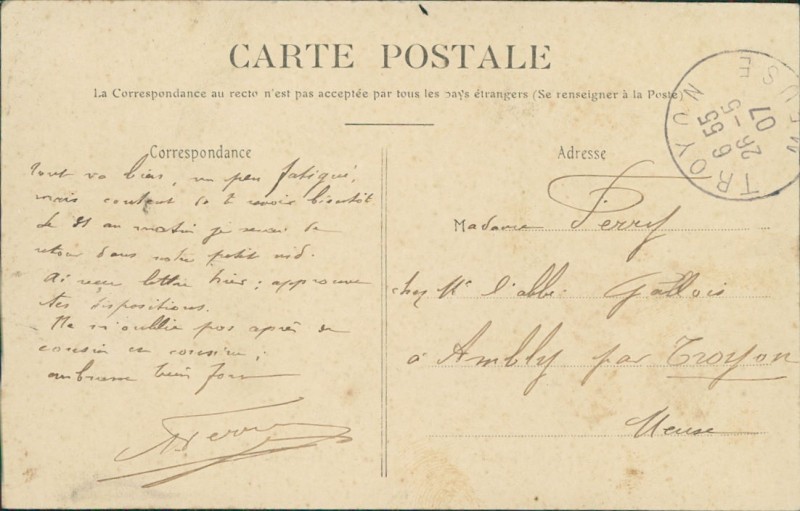 CARTE POSTALE
La Correspondance au recto n'est pas acceptée par tous les pays étrangers (Se renseigner à la Poste)
Correspondance
Tout va bien, un peu fatigué,
mais content de te revoir bientôt
Le 31 au matin je serai de
retour dans notre petit nid.
Ai reçu lettre hier; approuve
tes dispositions.
Ne m'oublie pas après de
cousin et cousine;
embrasse bien fort
Adresse
Madame Perry
chez Mr l'abbé Gallois
à Ambly par Troyon
Meuse
TROYON
6 55
26 -5
07
MEUSE